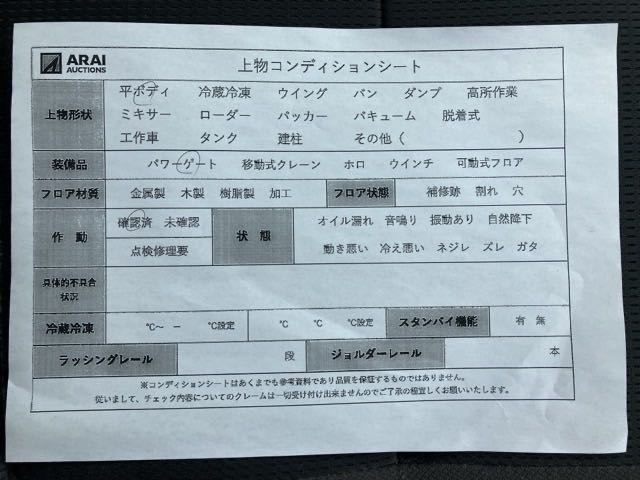 ARAI
AUCTIONS
上物コンディションシート
上物形状
平ボディ 冷蔵冷凍 ウイング バン ダンプ 高所作業
ミキサー ローダー パッカー バキューム 脱着式
工作車 タンク 建柱 その他( )
装備品
パワーゲート 移動式クレーン ホロ ウインチ 可動式フロア
フロア材質 金属製 木製 樹脂製 加工 フロア状態 補修跡 割れ 穴
作動
確認済 未確認
点検修理要
状態
オイル漏れ 音鳴り 振動あり 自然降下
動き悪い 冷え悪い ネジレ ズレ ガタ
具体的不具合
状況
冷蔵冷凍 ℃~ − ℃設定 ℃ ℃ ℃設定 スタンバイ機能 有 無
ラッシングレール 段 ジョルダーレール 本
※コンディションシートはあくまでも参考資料であり品質を保証するものではありません。
従いまして、チェック内容についてのクレームは一切受け付け出来ませんのでご了承の程宜しくお願いいたします。